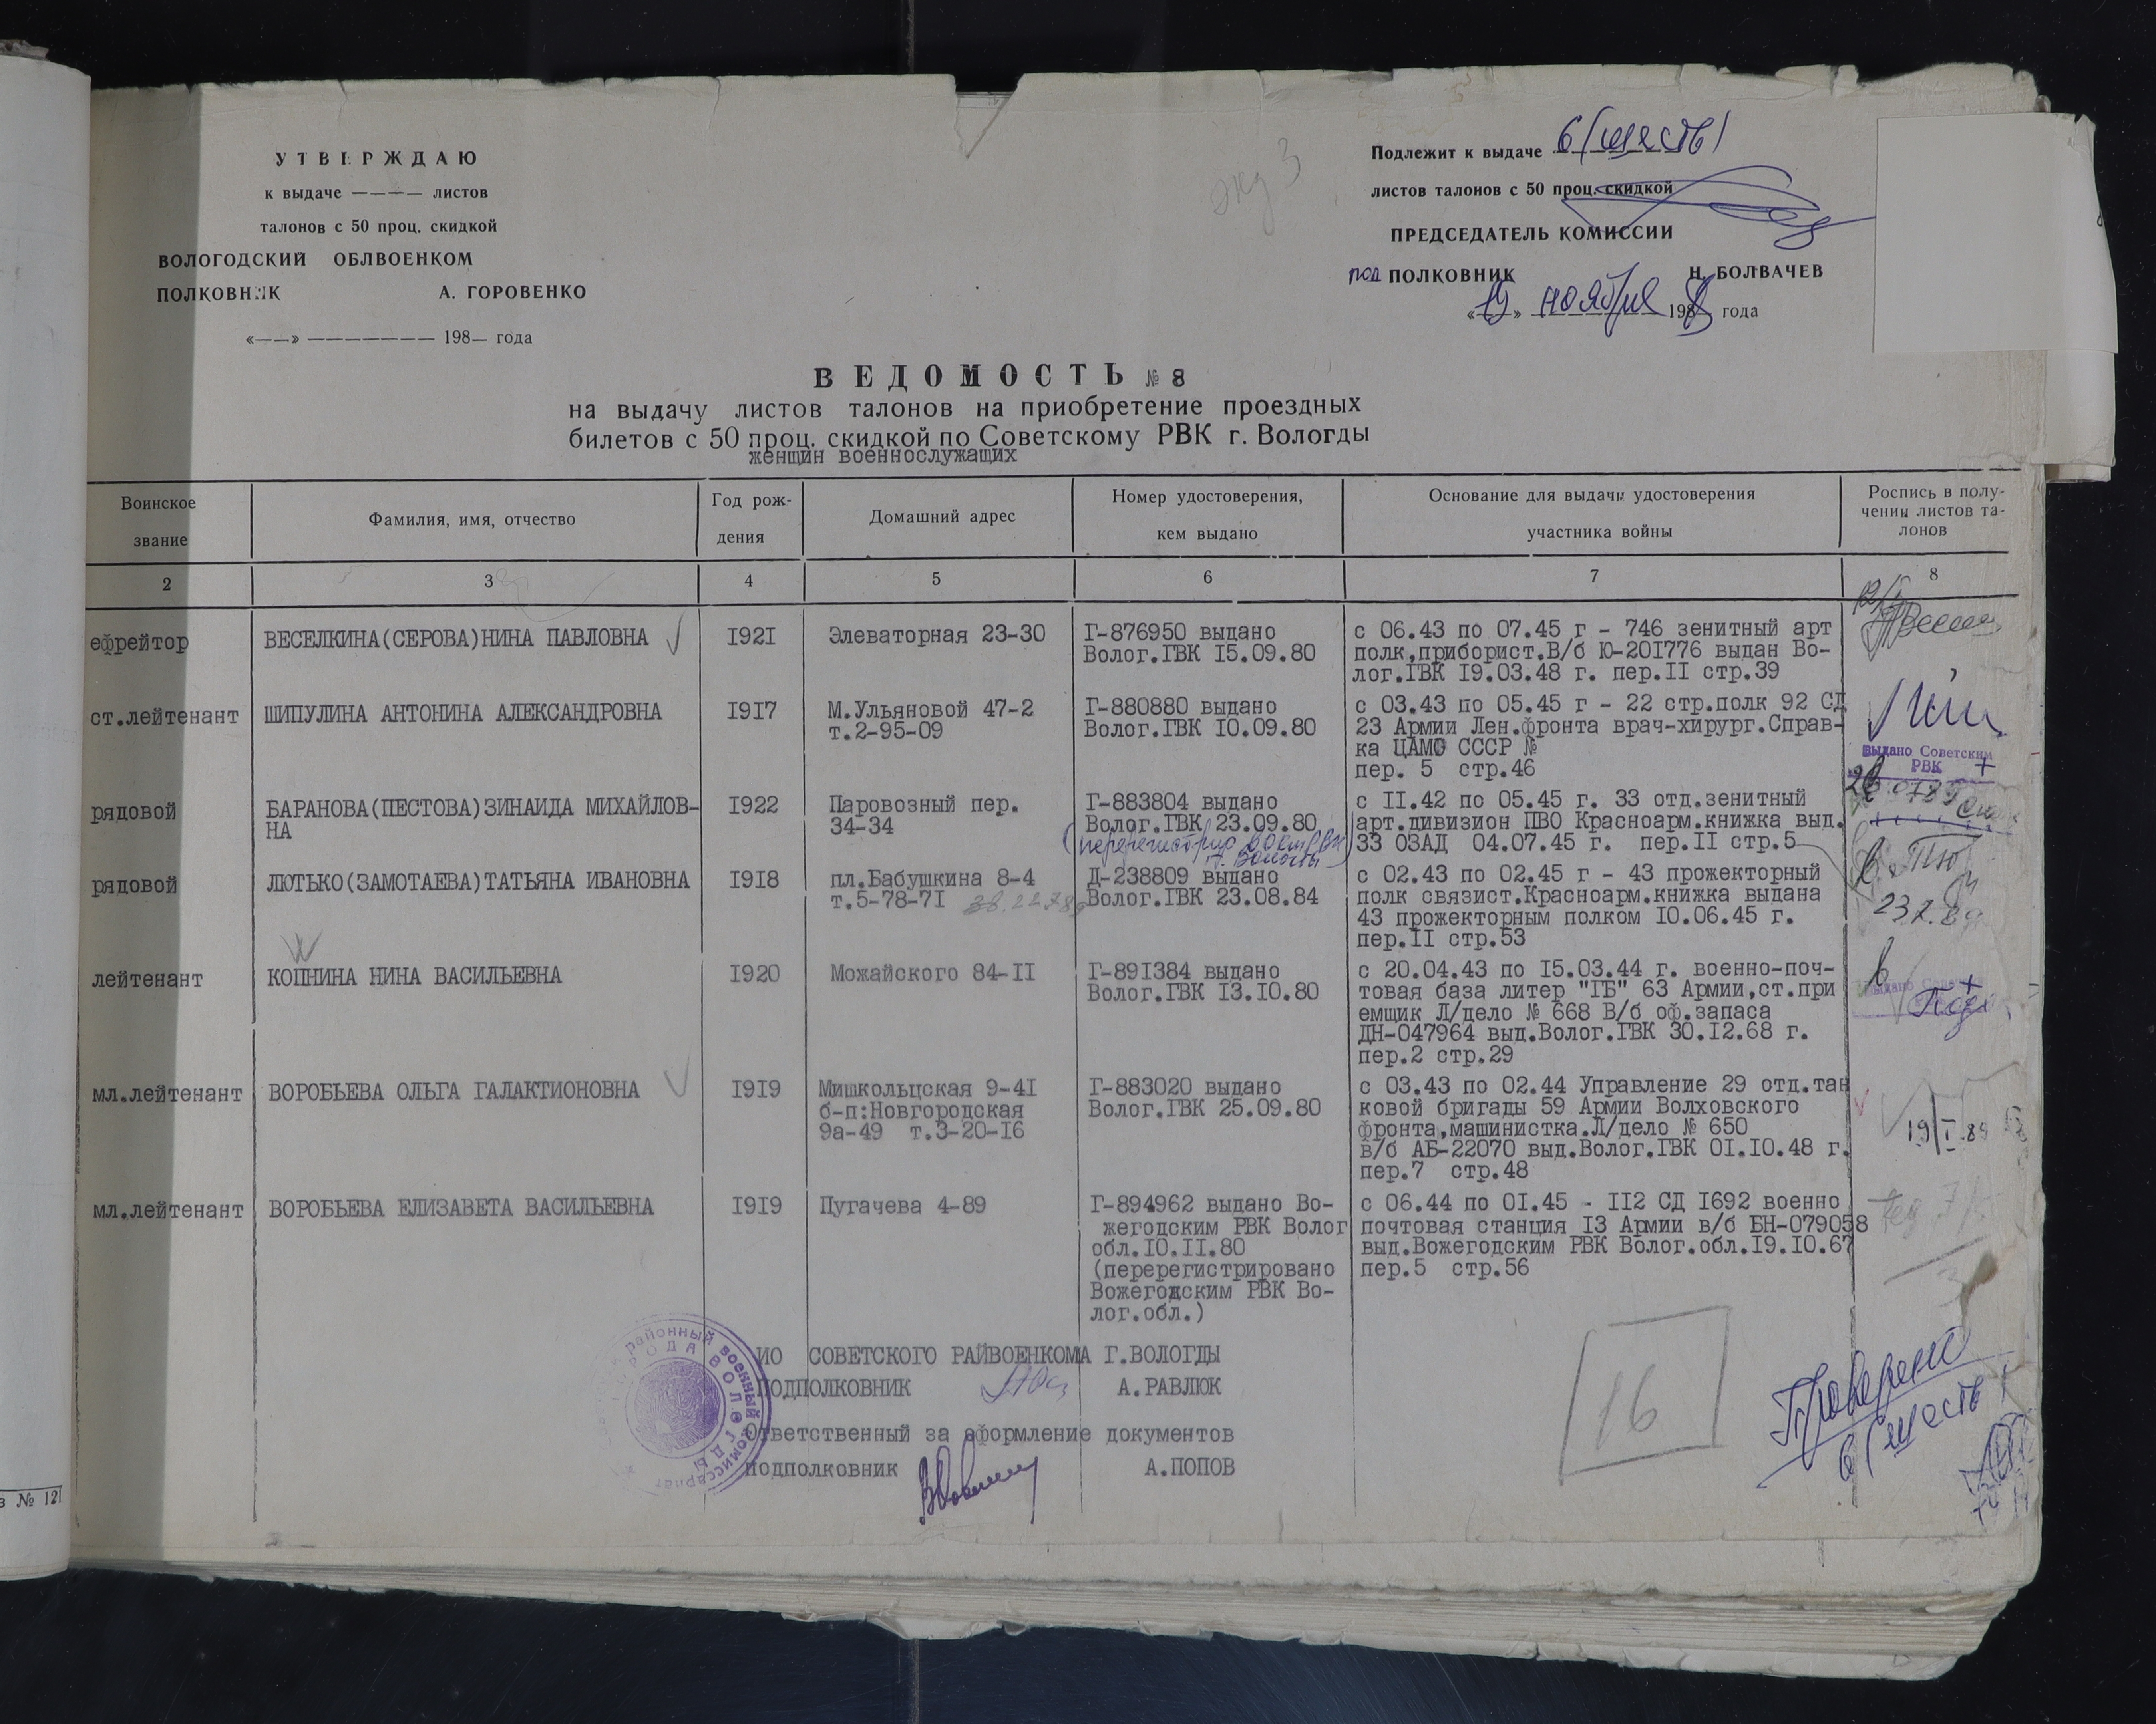 УТВЕРЖДАЮ
к выдаче ———— листов
талонов с 50 проц. скидкой
ВОЛОГОДСКИЙ ОБЛВОЕНКОМ
ПОЛКОВНИК А. ГОРОВЕНКО
«——» ——————— 198— года
экз 3
Подлежит к выдаче 6 (шесть)
листов талонов с 50 проц. скидкой
ПРЕДСЕДАТЕЛЬ КОМИССИИ
под ПОЛКОВНИК Н. БОЛВАЧЕВ
«19» ноября 1988 года
ВЕДОМОСТЬ № 8
на выдачу листов талонов на приобретение проездных
билетов с 50 проц. скидкой по Советскому РВК г. Вологды
женщин военнослужащих
Воинское звание
Фамилия, имя, отчество
Год рож-
дения
Домашний адрес
Номер удостоверения,
кем выдано
Основание для выдачи удостоверения
участника войны
Роспись в полу-
чении листов та-
лонов
2 3 4 5 6 7 8
ефрейтор
ВЕСЕЛКИНА(СЕРОВА)НИНА ПАВЛОВНА
I92I
Элеваторная 23-30
Г-876950 выдано
Волог.ГВК I5.09.80
с 06.43 по 07.45 г - 746 зенитный арт
полк,приборист.В/б Ю-20I776 выдан Во-
лог.ГВК I9.03.48 г. пер.II стр.39
ст.лейтенант
ШИПУЛИНА АНТОНИНА АЛЕКСАНДРОВНА
I9I7
М.Ульяновой 47-2
т.2-95-09
Г-880880 выдано
Волог.ГВК I0.09.80
с 03.43 по 05.45 г - 22 стр.полк 92 СД
23 Армии Лен.фронта врач-хирург.Справ-
ка ЦАМО СССР №
пер. 5 стр.46
выдано Советским
РВК
рядовой
БАРАНОВА(ПЕСТОВА)ЗИНАИДА МИХАЙЛОВ-
НА
I922
Паровозный пер.
34-34
Г-883804 выдано
Волог.ГВК 23.09.80
с II.42 по 05.45 г. 33 отд.зенитный
арт.дивизион ПВО Красноарм.книжка выд.
33 ОЗАД 04.07.45 г. пер.II стр.5
рядовой
ЛЮТЬКО(ЗАМОТАЕВА)ТАТЬЯНА ИВАНОВНА
I9I8
пл.Бабушкина 8-4
т.5-78-7I
Д-238809 выдано
Волог.ГВК 23.08.84
с 02.43 по 02.45 г - 43 прожекторный
полк связист.Красноарм.книжка выдана
43 прожекторным полком I0.06.45 г.
пер.II стр.53
лейтенант
КОПНИНА НИНА ВАСИЛЬЕВНА
I920
Можайского 84-II
Г-89I384 выдано
Волог.ГВК I3.I0.80
с 20.04.43 по I5.03.44 г. военно-поч-
товая база литер "ГБ" 63 Армии,ст.при
емщик Л/дело № 668 В/б оф.запаса
ДН-047964 выд.Волог.ГВК 30.I2.68 г.
пер.2 стр.29
мл.лейтенант
ВОРОБЬЕВА ОЛЬГА ГАЛАКТИОНОВНА
I9I9
Мишкольцская 9-4I
б-п:Новгородская
9а-49 т.3-20-I6
Г-883020 выдано
Волог.ГВК 25.09.80
с 03.43 по 02.44 Управление 29 отд.тан
ковой бригады 59 Армии Волховского
фронта,машинистка.Л/дело № 650
в/б АБ-22070 выд.Волог.ГВК 0I.I0.48 г.
пер.7 стр.48
19/I.89
мл.лейтенант
ВОРОБЬЕВА ЕЛИЗАВЕТА ВАСИЛЬЕВНА
I9I9
Пугачева 4-89
Г-894962 выдано Во-
жегодским РВК Волог
обл.I0.II.80
(перерегистрировано
Вожегодским РВК Во-
лог.обл.)
с 06.44 по 0I.45 - II2 СД I692 военно
почтовая станция I3 Армии в/б БН-079058
выд.Вожегодским РВК Волог.обл.I9.I0.67
пер.5 стр.56
ИО СОВЕТСКОГО РАЙВОЕНКОМА Г.ВОЛОГДЫ
ПОДПОЛКОВНИК А.РАВЛЮК
Ответственный за оформление документов
подполковник А.ПОПОВ
районный военный комиссариат
ГОРОДА ВОЛОГДЫ
16
Проверено
6 (шесть)
з № 121